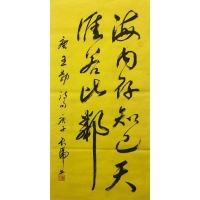 海内存知己天
涯若比邻
唐王勃诗句庚子